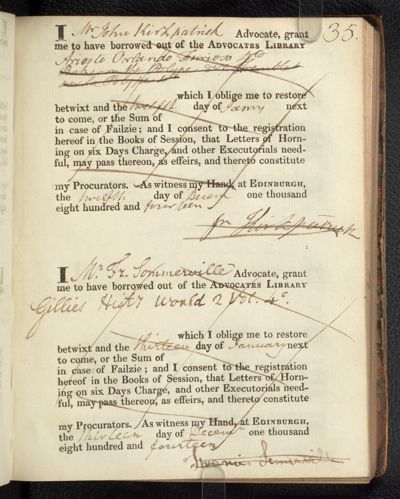 35.
I Mr John Kirkpatrick Advocate, grant
me to have borrowed out of the ADVOCATES LIBRARY
Ariosto Orlando Furioso
which I oblige me to restore
betwixt and the twelfth day of Jany next
to come, or the Sum of
in case of Failzie; and I consent to the registration
hereof in the Books of Session, that Letters of Horn-
ing on six Days Charge, and other Executorials need-
ful, may pass thereon, as effeirs, and thereto constitute
my Procurators. As witness my Hand, at EDINBURGH,
the twelfth day of Decemr one thousand
eight hundred and fourteen
Jn Kirkpatrick
I Mr Fr. Sommerville Advocate, grant
me to have borrowed out of the ADVOCATES LIBRARY
Gillies Histy World 2 Vol. 4o.
which I oblige me to restore
betwixt and the thirteen day of January next
to come, or the Sum of
in case of Failzie; and I consent to the registration
hereof in the Books of Session, that Letters of Horn-
ing on six Days Charge, and other Executorials need-
ful, may pass thereon, as effeirs, and thereto constitute
my Procurators. As witness my Hand, at EDINBURGH,
the thirteen day of Decemr one thousand
eight hundred and fourteen